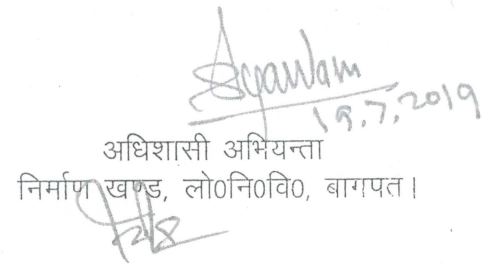 19.7.2019
अधिशासी अभियन्ता
निर्माण खण्ड, लो०नि०वि०, बागपत।